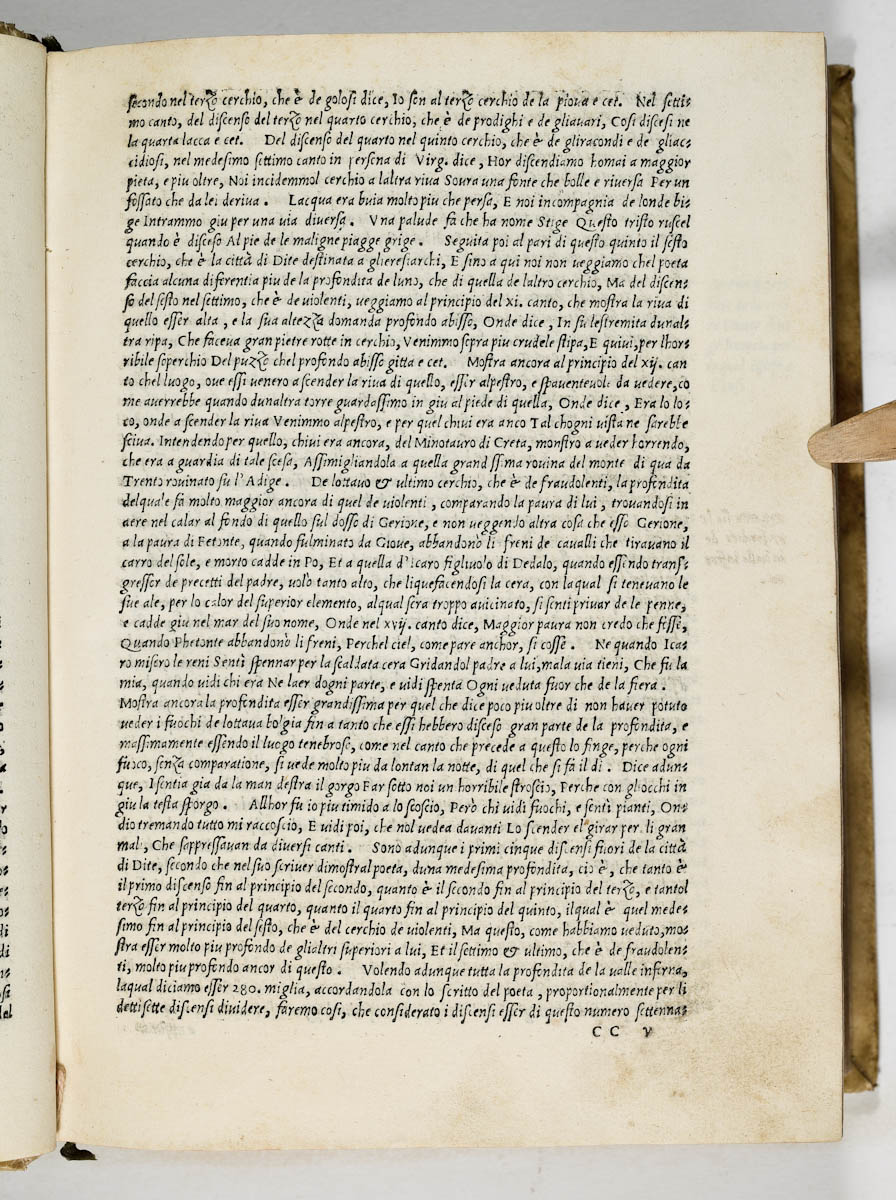 secondo nel terzo cerchio, che è de golosi dice, Io son al terzo cerchio de la piova e cet. Nel setti-
mo canto, del discenso del terzo nel quarto cerchio, che è de prodighi e de gliavari, Cosi discesi ne
la quarta lacca e cet. Del discenso del quarto nel quinto cerchio, che è de gliracondi e de gliac-
cidiosi, nel medesimo settimo canto in persona di Virg. dice, Hor discendiamo homai a maggior
pieta, e piu oltre, Noi incidemmol cerchio a laltra riva Soura una fonte che bolle e riversa Per un
fossato che da lei deriva. Lacqua era buia molto piu che persa, E noi incompagnia de londe bi-
ge Intrammo giu per una via diversa. Vna palude fa che ha nome Stige Questo tristo ruscel
quando è disceso Al pie de le maligne piagge grige. Seguita poi al pari di questo quinto il sesto
cerchio, che è la città di Dite destinata a glieresiarchi, E sino a qui noi non veggiamo chel poeta
faccia alcuna diferentia piu de la profondita de luno, che di quella de laltro cerchio, Ma del discen-
so del sesto nel settimo, che è de violenti, veggiamo al principio del xi. canto, che mostra la riva di
quello esser alta, e la sua altezza domanda profondo abisso, Onde dice, In su lestremita dunal-
tra ripa, Che faceua gran pietre rotte in cerchio, Venimmo sopra piu crudele stipa, E quiui, per lhor-
ribile soperchio Del puzzo chel profondo abisso gitta e cet. Mostra ancora al principio del xij. can
to chel luogo, oue essi venero a scender la riva di quello, esser alpestro, e spauentevole da vedere, co
me auerrebbe quando dunaltra torre guardassimo in giu al piede di quella, Onde dice, Era lo lo-
co, onde a scender la riva Venimmo alpestro, e per quel chiui era anco Tal chogni vista ne sarebbe
sciua. Intendendo per quello, chiui era ancora, del Minotauro di Creta, monstro a veder horrendo,
che era a guardia di tale scesa, Assimigliandola a quella grandissima rouina del monte di qua da
Trento rouinato su l'Adige. De lottauo & ultimo cerchio, che è de fraudolenti, la profondita
delquale fa molto maggior ancora di quel de violenti, comparando la paura di lui, trouandosi in
aere nel calar al fondo di quello sul dosso di Gerione, e non veggendo altra cosa che esso Gerione,
a la paura di Fetonte, quando fulminato da Gioue, abbandonò li freni de cavalli che tiravano il
carro del sole, e morto cadde in Po, Et a quella d'Icaro figliuolo di Dedalo, quando essendo trans-
gressor de precetti del padre, volò tanto alto, che liquefacendosi la cera, con laqual si tenevano le
sue ale, per lo calor del superior elemento, alqual sera troppo auicinato, si senti privar de le penne,
e cadde giu nel mar del suo nome, Onde nel xvij. canto dice, Maggior paura non credo che fosse,
Quando Phetonte abbandonò li freni, Perchel ciel, come pare anchor, si cosse. Ne quando Ica-
ro misero le reni Sentì spennar per la scaldata cera Gridandol padre a lui, mala via tieni, Che fu la
mia, quando vidi chi era Ne laer dogni parte, e vidi spenta Ogni veduta fuor che de la fiera.
Mostra ancora la profondita esser grandissima per quel che dice poco piu oltre di non hauer potuto
veder i fuochi de lottaua bolgia fin a tanto che essi hebbero disceso gran parte de la profondita, e
massimamente essendo il luogo tenebroso, come nel canto che precede a questo lo finge, perche ogni
fuoco, senza comparatione, si vede molto piu da lontan la notte, di quel che si fà il di. Dice adun-
que, I sentia gia da la man destra il gorgo Far sotto noi un horribile stroscio, Perche con gliocchi in
giu la testa sporgo. Allhor fu io piu timido a lo scoscio, Però chi vidi fuochi, e sentì pianti, On-
dio tremando tutto mi raccoscio, E vidi poi, che nol vedea davanti Lo scender el girar per li gran
mali, Che sappressauan da diversi canti. Sono adunque i primi cinque discensi fuori de la città
di Dite, secondo che nel suo scriver dimostral poeta, duna medesima profondita, ciò è, che tanto è
il primo discenso fin al principio del secondo, quanto è il secondo fin al principio del terzo, e tantol
terzo fin al principio del quarto, quanto il quarto fin al principio del quinto, ilqual è quel mede-
simo fin al principio del sesto, che è del cerchio de violenti, Ma questo, come habbiamo veduto, mo-
stra esser molto piu profondo de glialtri superiori a lui, Et il settimo & ultimo, che è de fraudolen-
ti, molto piu profondo ancor di questo. Volendo adunque tutta la profondita de la valle inferna,
laqual diciamo esser 280. miglia, accordandola con lo scritto del poeta, proportionalmente per li
detti sette discensi dividere, faremo cosi, che considerato i discensi esser di questo numero settenna-
CC V